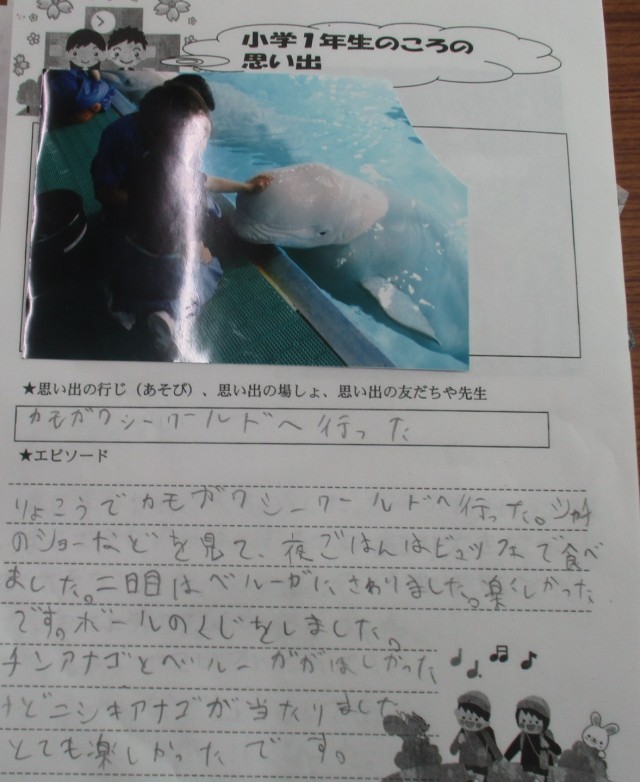 小学1年生のころの
思い出
★思い出の行じ（あそび）、思い出の場しょ、思い出の友だちや先生
カモガワシーワールドへ行った
★エピソード
りょこうでカモガワシーワールドへ行った。シャチ
のショーなどを見て、夜ごはんはビュッフェで食べ
ました。二日目はベルーガに、さわりました。楽しかった
です。ボールのくじをしました。
チンアナゴとベルーガがほしかった
けどニシキアナゴが当たりました
とても楽しかったです。